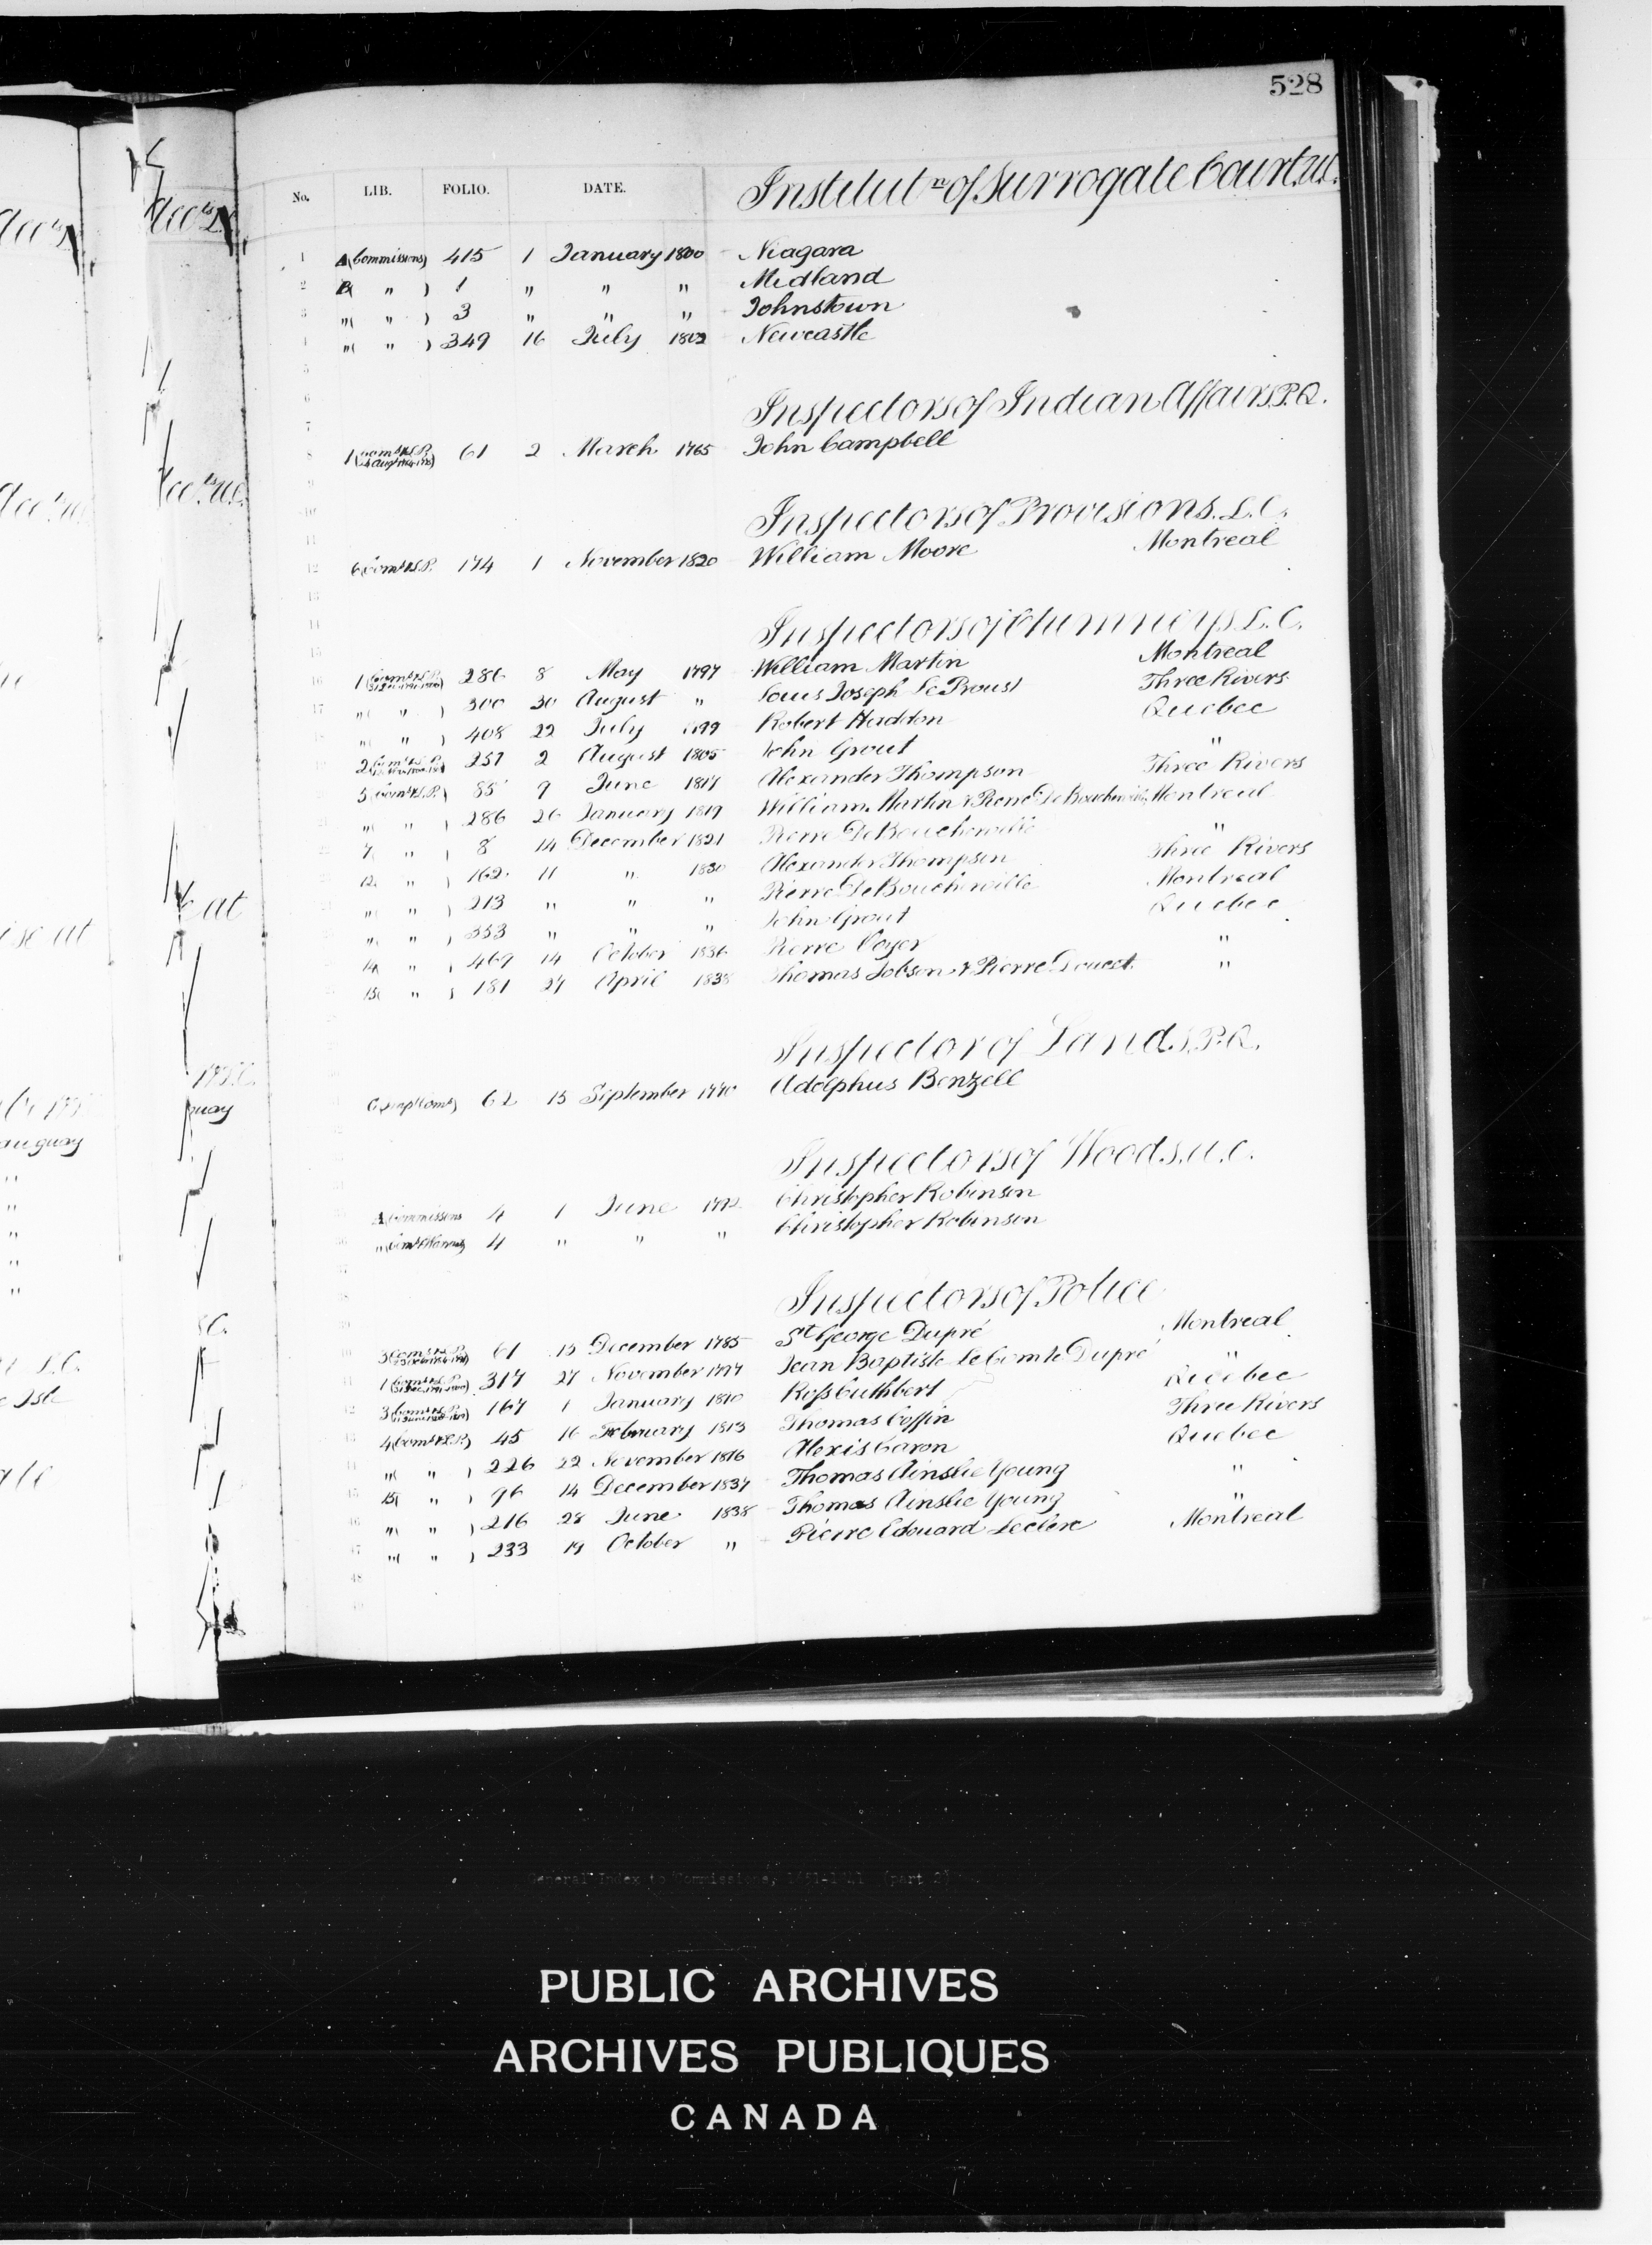 528
No. LIB. FOLIO. DATE. Institutn of Surrogate Court U.C.
1 A (Commissions) 415 1 January 1800 Niagara
2 B( " ) 1 " " " Midland
3 "( " ) 3 " " " Johnstown
"( " ) 349 16 July 1802 Newcastle
5
6 Inspectors of Indian Affairs P.Q.
7
8 1 61 2 March 1765 John Campbell
9
10 Inspectors of Provisions. L.C.
11
12 6 (Coms & L.P. 174 1 November 1820 William Moore Montreal
13
14 Inspectors of Chimneys L.C.
15
16 1 286 8 May 1797 William Martin Montreal
17 "( " ) 300 30 August " Louis Joseph Le Proust Three Rivers
"( " ) 408 22 July 1799 Robert Haddon Quebec
2 251 2 August 1805 John Grout "
5 (Coms & L.P.) 85 9 June 1817 Alexander Thompson Three Rivers
"( " ) 286 26 January 1819 William Martin & Pierre De Boucherville Montreal
7( " ) 8 14 December 1821 Pierre De Boucherville "
12( " ) 162 11 " 1830 Alexander Thompson Three Rivers
"( " ) 213 " " " Pierre De Boucherville Montreal
"( " ) 353 " " " John Grout Quebec
14( " ) 469 14 October 1836 Pierre Voyer "
15( " ) 181 27 April 1838 Thomas Jobson & Pierre Doucet "
Inspector of Lands. P.Q.
62 15 September 1770 Adolphus Benzell
Inspectors of Woods. U.C.
A (Commissions 4 1 June 1792 Christopher Robinson
36 " 4 " " " Christopher Robinson
37
38 Inspectors of Police
39
40 3 61 15 December 1785 St George Dupré Montreal
41 1 317 27 November 1797 Jean Baptiste Le Comte Dupré "
42 3 167 1 January 1810 Ross Cuthbert Quebec
43 4 (Coms & L.P.) 45 16 February 1813 Thomas Coffin Three Rivers
44 "( " ) 226 22 November 1816 Alexis Caron Quebec
45 15( " ) 96 14 December 1837 Thomas Ainslie Young "
46 "( " ) 216 28 June 1838 Thomas Ainslie Young "
47 "( " ) 233 19 October " Pierre Edouard Leclerc Montreal
48
49
General Index to Commissions, 1651-1841 (part 2)
PUBLIC ARCHIVES
ARCHIVES PUBLIQUES
CANADA